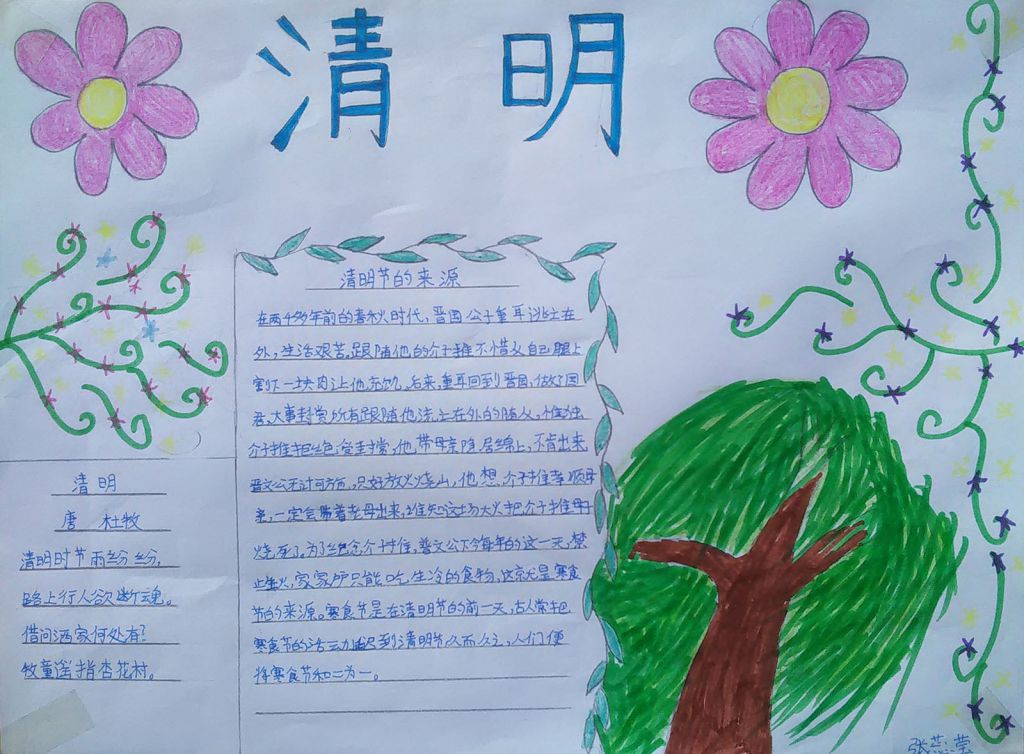 清明
清明节的来源
在两千多年前的春秋时代，晋国公子重耳逃亡在
外，生活艰苦，跟随他的介子推不惜从自己腿上
割下一块肉让他充饥，后来，重耳回到晋国，做了国
君，大事封赏所有跟随他流亡在外的随从，惟独
介子推拒绝受封赏，他带母亲隐居绵上，不肯出来，
晋文公无计可施，只好放火烧山，他想，介子推孝顺母
亲，一定会带着老母出来，谁知这场大火把介子推母子
烧死了。为了纪念介子推，晋文公下令每年的这一天，禁
止生火，家家户只能吃生冷的食物，这就是寒食
节的来源。寒食节是在清明节的前一天，古人常把
寒食节的活动延到清明节久而久之，人们便
将寒食节和二为一。
清明
唐 杜牧
清明时节雨纷纷，
路上行人欲断魂。
借问酒家何处有？
牧童遥指杏花村。